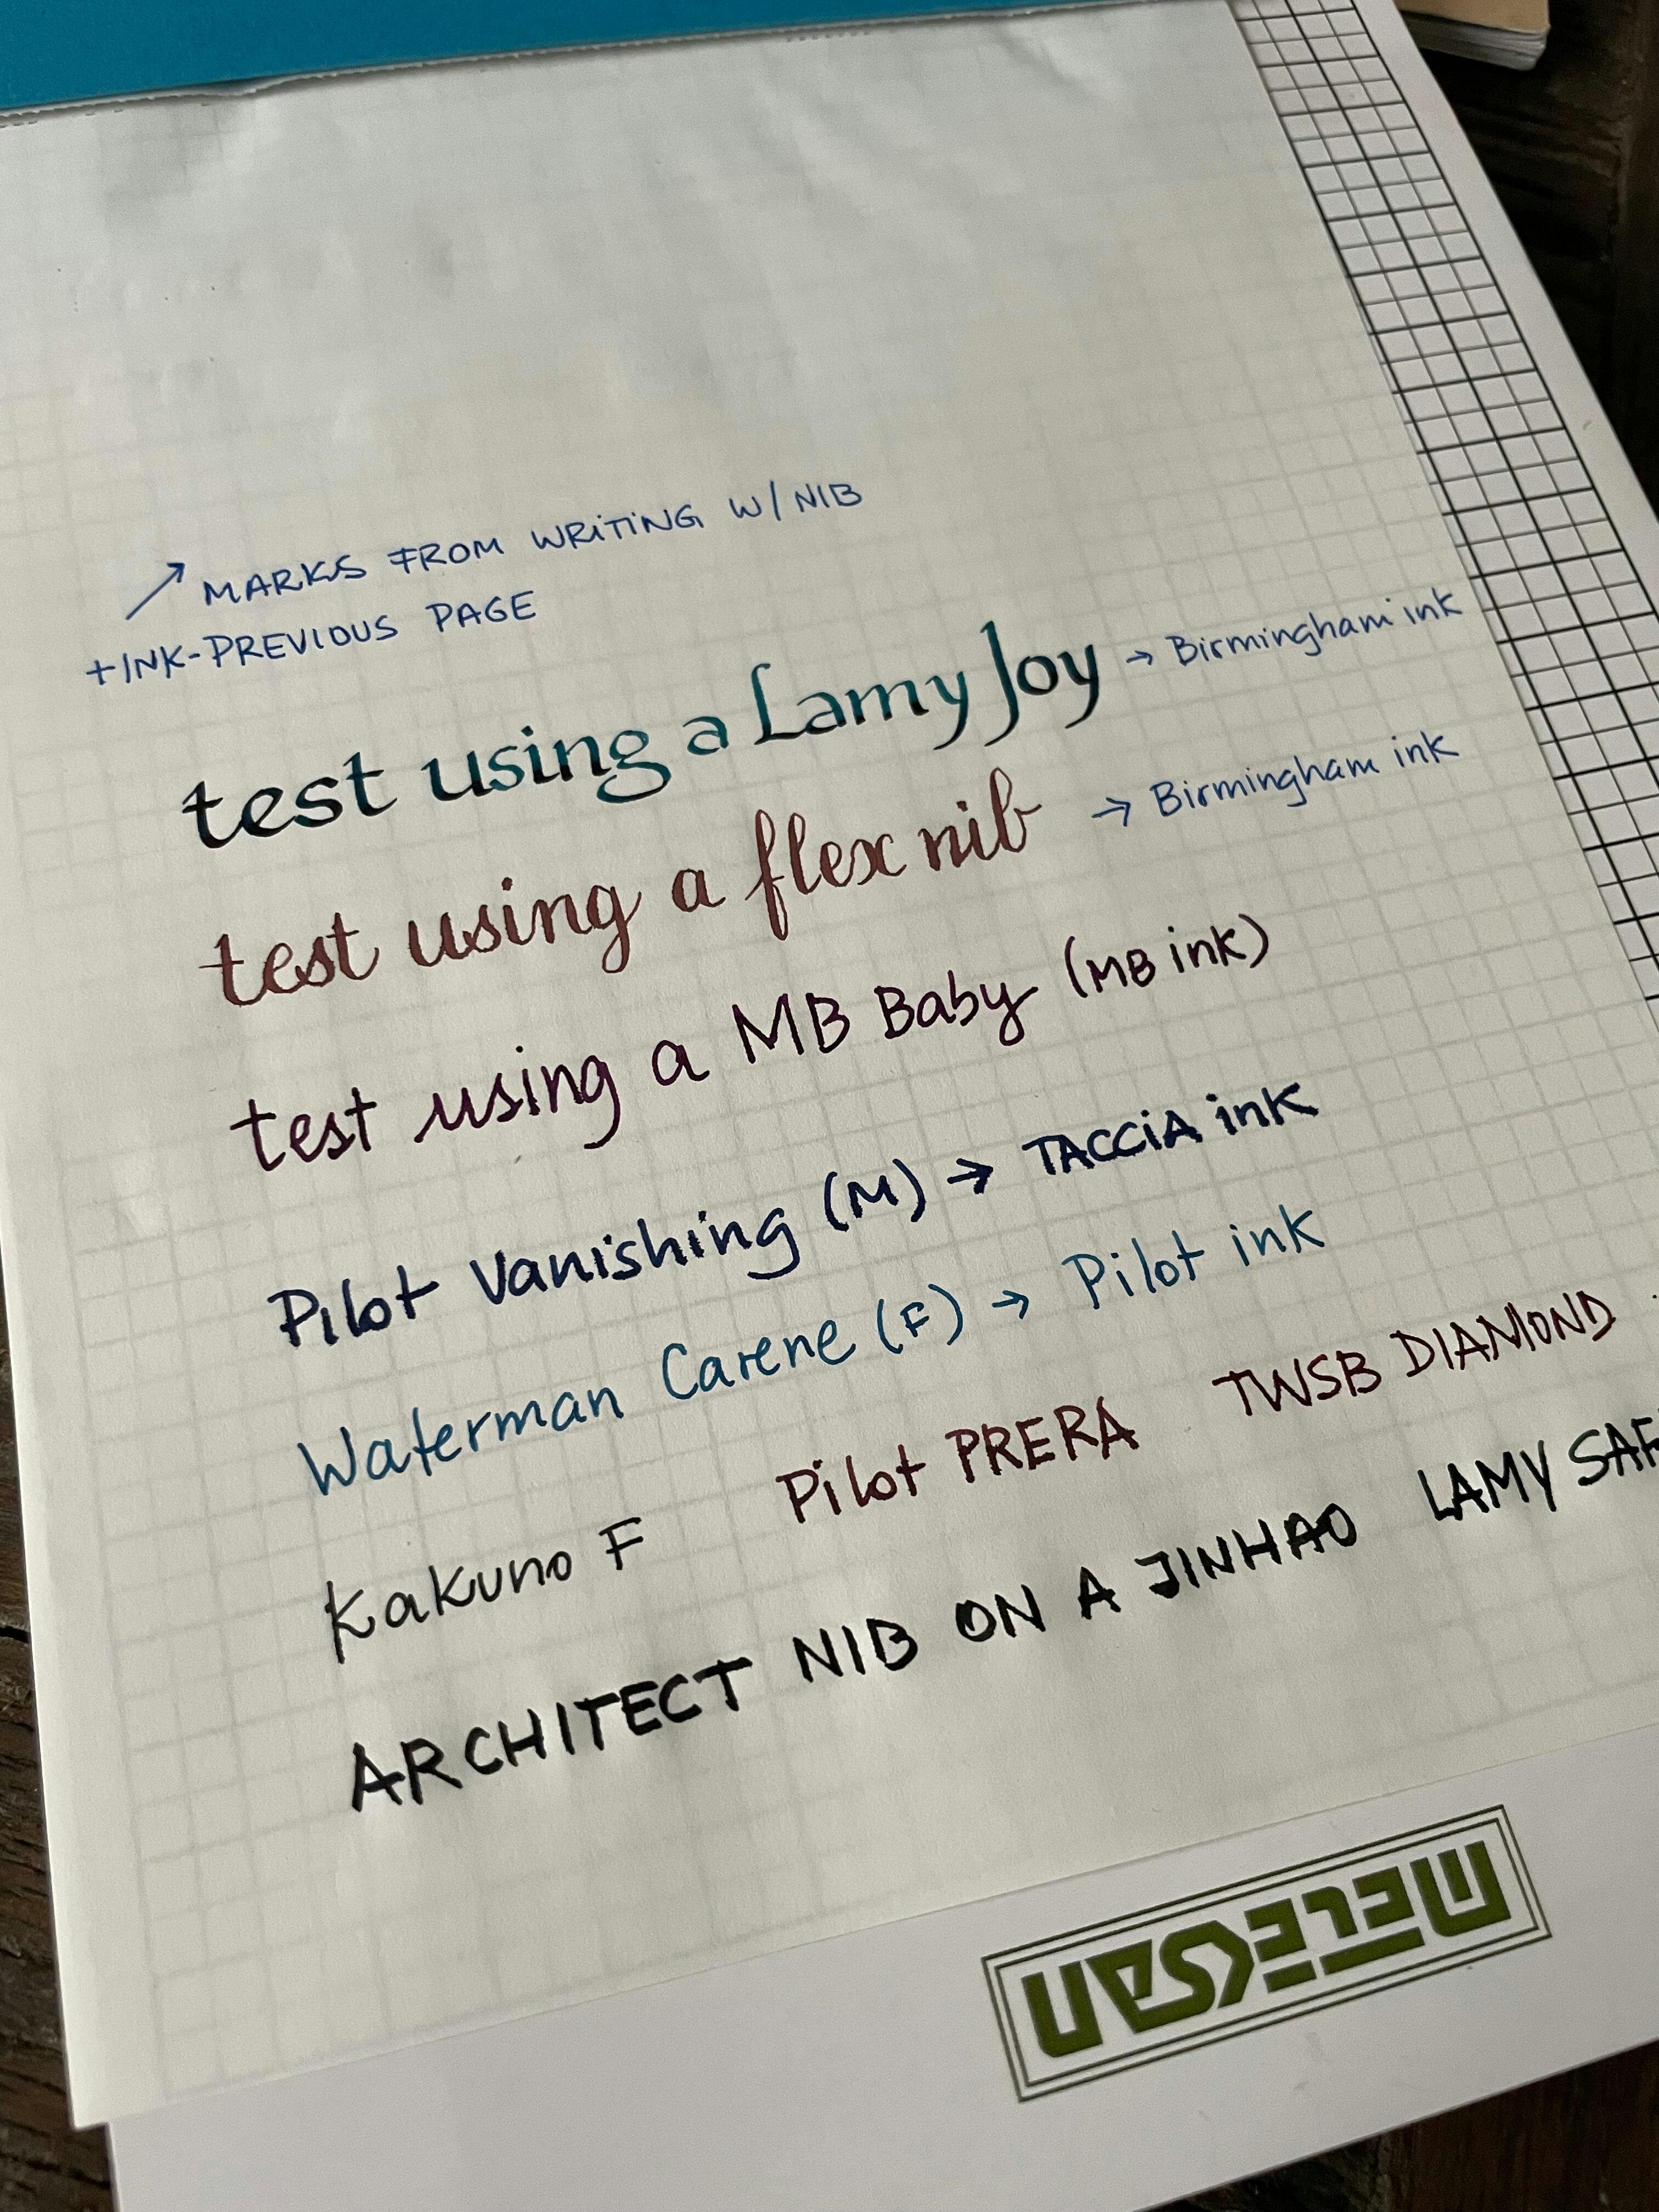 ↗ MARKS FROM WRITING W/ NIB
+INK-PREVIOUS PAGE
test using a Lamy Joy → Birmingham ink
test using a flex nib → Birmingham ink
test using a MB Baby (MB ink)
Pilot Vanishing (M) → TACCIA ink
Waterman Carene (F) → Pilot ink
Kakuno F Pilot PRERA TWSB DIAMOND
ARCHITECT NIB ON A JINHAO LAMY SAF